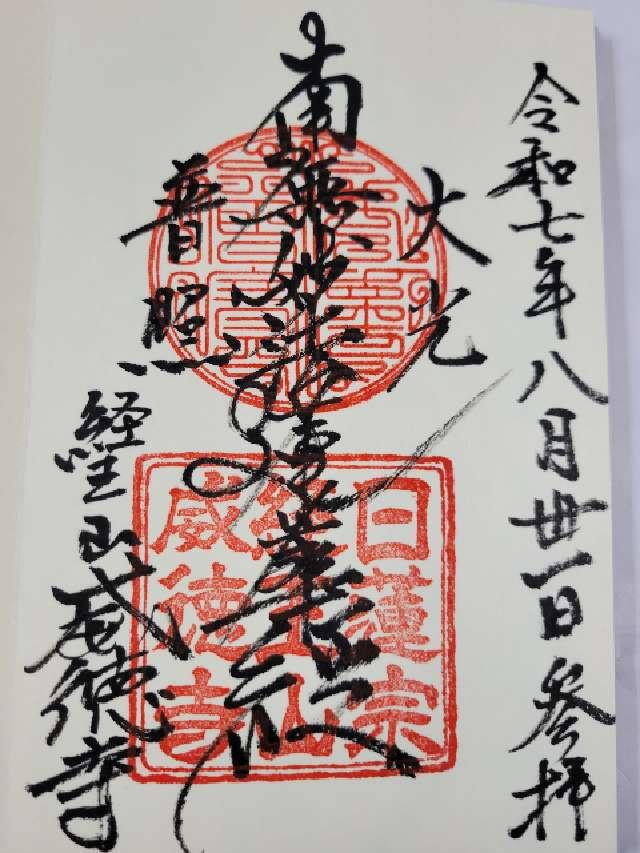 令和七年八月丗一日 参拝
大光
南無妙法蓮華経
普照
経王山威徳寺
日蓮宗
経王山
威徳寺